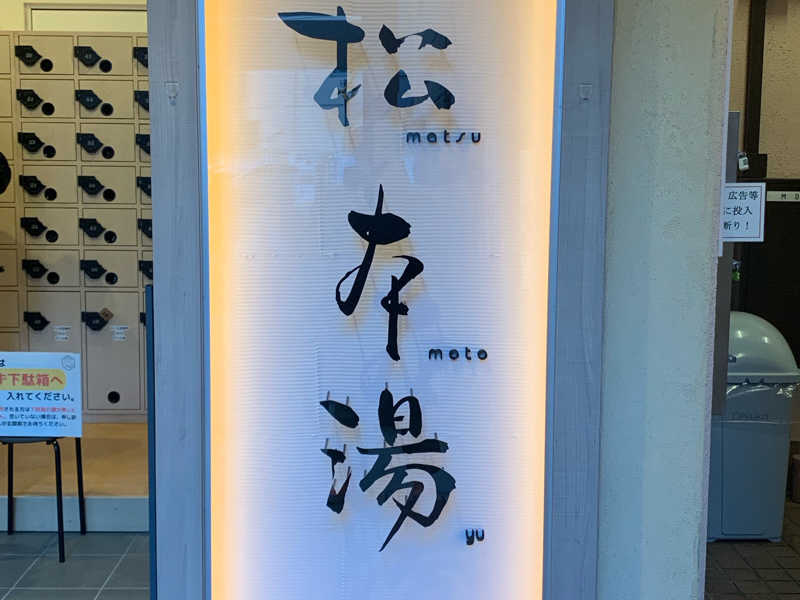 松
matsu
本
moto
湯
yu
下駄箱へ
入れてください。
広告等
に投入
断り！